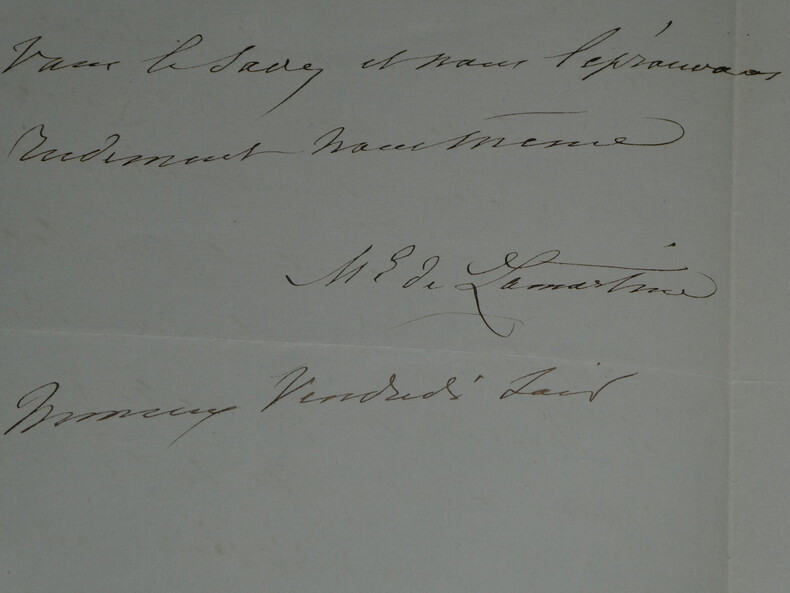 Vous le savez et nous l'éprouvons
rudement nous même
M E de Lamartine
Monceau Vendredi soir